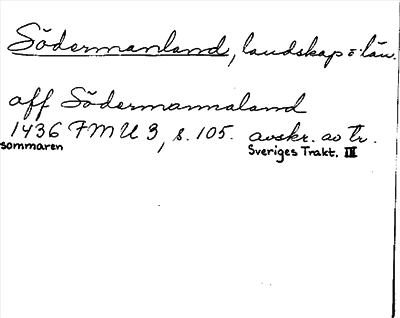 Södermanland, landskap o. län.
aff Södermannaland
1436 FMU 3, s. 105. avskr. av tr.
sommaren Sveriges Trakt. III